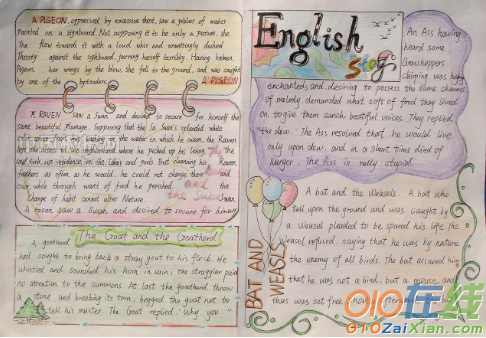 A PIGEON, oppressed by excessive thirst, saw a goblet of water
painted on a signboard. Not supposing it to be only a picture, she
flew towards it with a loud whir and unwittingly dashed
against the signboard, jarring herself terribly. Having broken
her wings by the blow, she fell to the ground, and was caught
by one of the bystanders.
A PIGEON
A RAVEN saw a Swan and desired to secure for himself the
same beautiful plumage. Supposing that the Swan's splendid white
the water in which he swam, the Raven
left the altars in the neighborhood where he picked up his living
and took up residence in the lakes and pools. But cleansing his
feathers as often as he would, he could not change their
color, while through want of food he perished.
Change of habit cannot alter Nature.
The Raven
and
the Swan
A raven saw a Swan and desired to secure for himself
The Goat and the Goatherd
A goatherd
had sought to bring back a stray goat to his flock. He
whistled and sounded his horn in vain; the straggler paid
no attention to the summons. At last the goatherd threw
a stone and breaking its horn, begged the goat not to
tell his master. The Goat replied, "Why you
English
Story
An Ass having
heard some
Grasshoppers
chirping, was highly
enchanted; and, desiring to possess the same charms
of melody, demanded what sort of food they lived
on to give them such beautiful voices. They replied,
"the dew." The Ass resolved that he would live
only upon dew, and in a short time died of
hunger. The Ass is really stupid.
BAT AND
WEASLS
A bat and the Weasels. A bat who
fell upon the ground and was caught by
a Weasel pleaded to be spared his life. The
Weasel refused, saying that he was by nature
the enemy of all birds. The bat assured him
that he was not a bird, but a mouse, and
thus was set free. Shortly afterwards
010在线
010ZaiXian.com